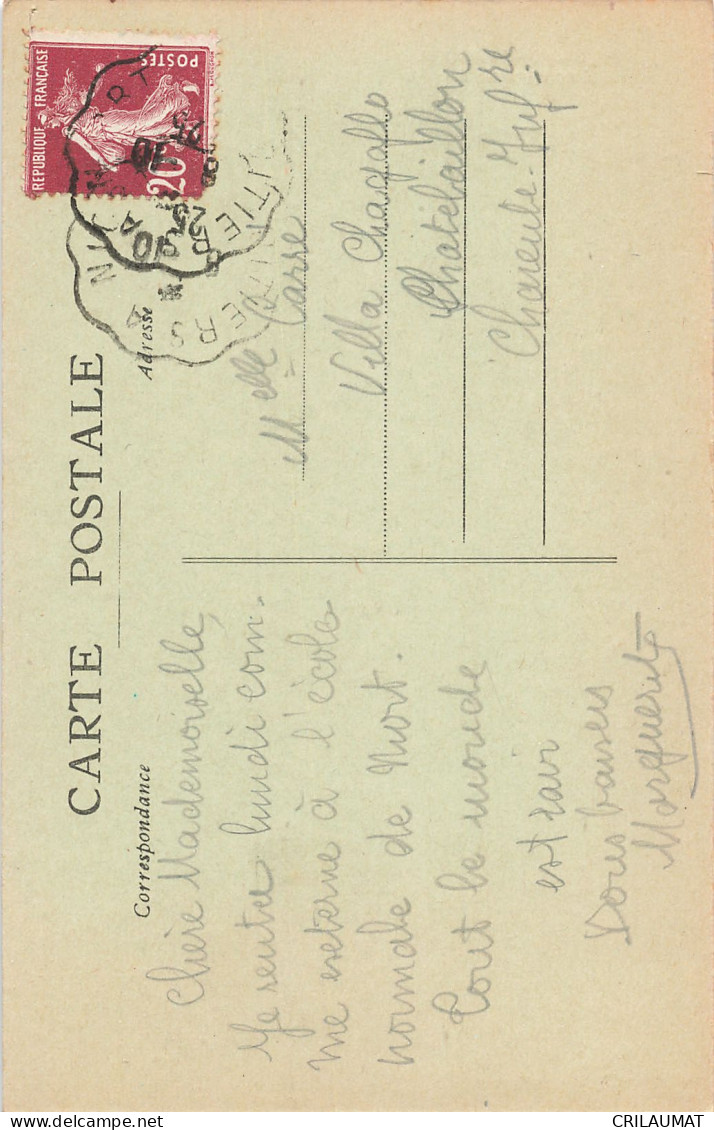 CARTE POSTALE
Correspondance
Adresse
Chère Mademoiselle,
Je rentre lundi com-
me externe à l'école
normale de Niort.
Tout le monde
est sain
Doux baisers
Marguerite
Melle Carré
Villa Chagallo
Chatelaillon
Charente-Infre
REPUBLIQUE FRANÇAISE
POSTES
20c
NIORT A POITIERS
10
25
CRILAUMAT